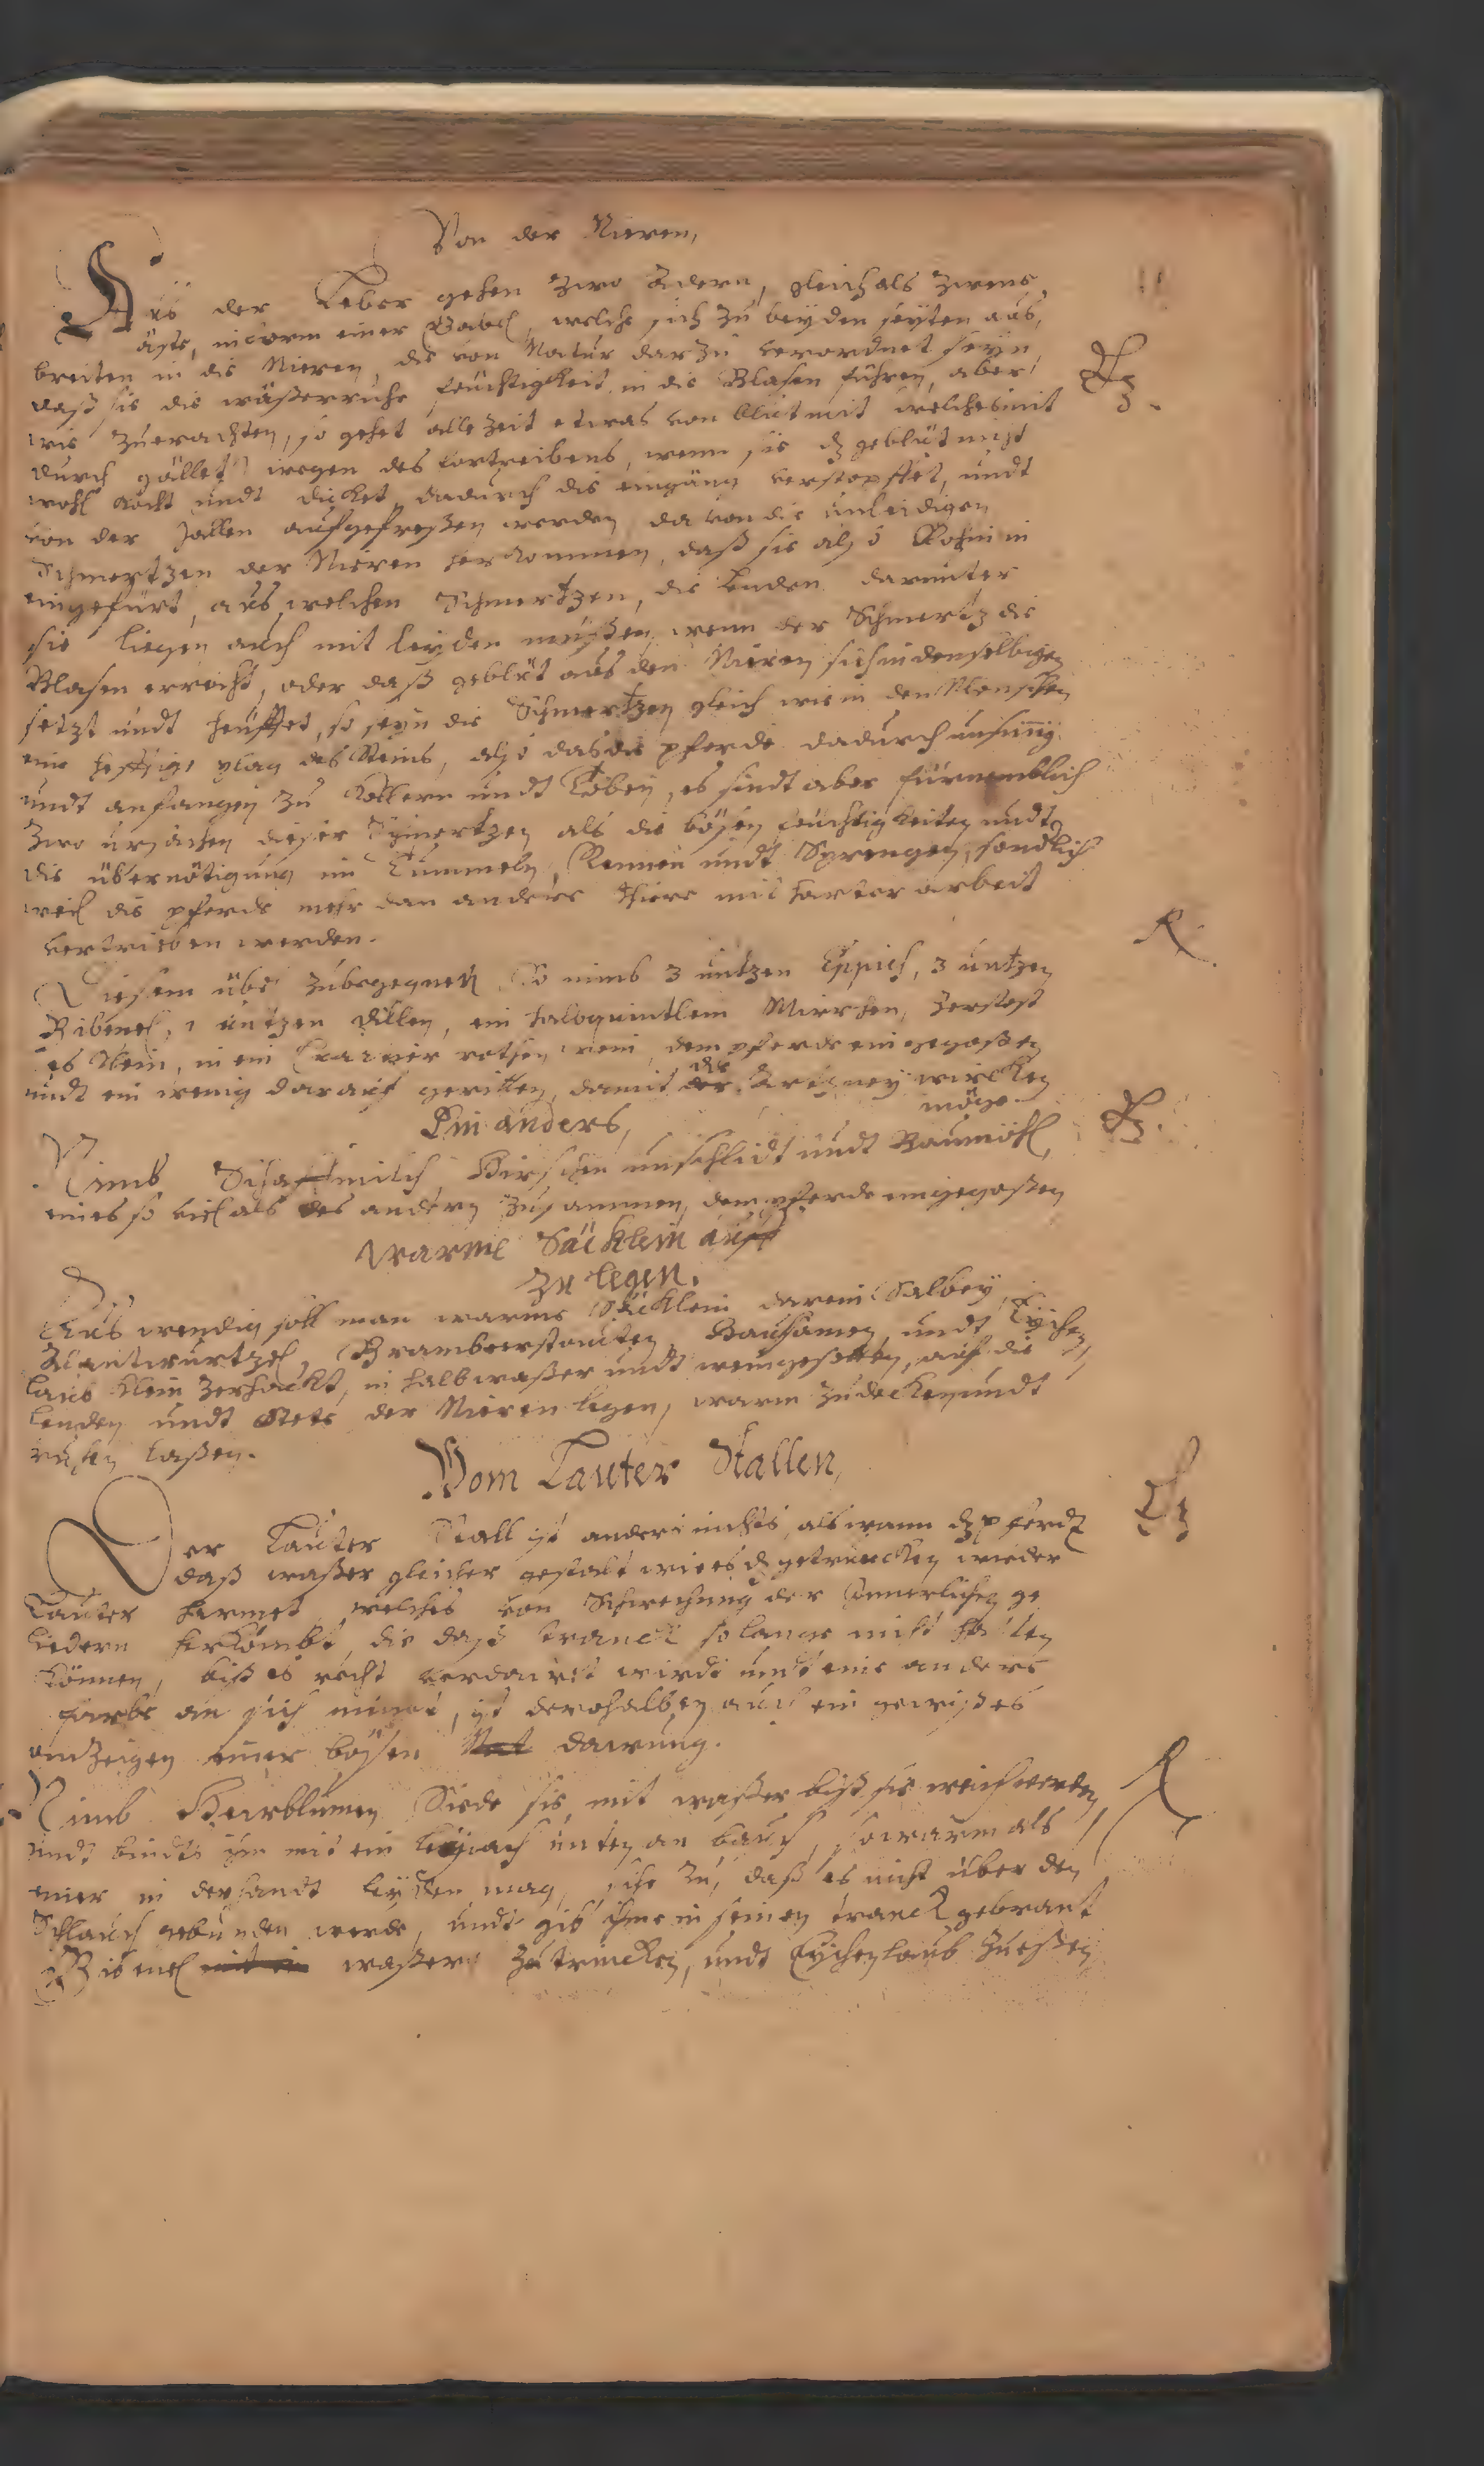 Von der Nieren,
Aus der Leber gehen zwo Adern, gleich als zweene
äste, in form einer Gabel, welche sich zu beyden seyten aus,
breiten in die Nieren, die von Natur darzu verordnet seyn,
daß sie die wäßerriche feuchtigkeit in die Blasen führen, aber
wie zuerachten, so gehet alle Zeit etwas von blut mit welches mit
durch wegen des fortreibens, wenn sie dz geblüt nicht
wohl kocht undt dicket, dadurch die eingäng verstopffet, undt
von der Gallen aufgefreßen werden da von die unleidigen
Schmertzen der Nieren herkommen, daß sie also
eingefürt, aus welchen Schmertzen, die Lenden darunter
sie liegen auch mit leyden müßen, wenn der Schmertz die
Blasen erreicht, oder daß geblüt aus den Nieren sich in denselbigen
setzt undt heuffet, so seyn die Schmertzen gleich wie in den Menschen
eine hefftige plag des Steins, also das die pferde dadurch unsinnig
undt anfangen zu Kollern undt Toben, es sindt aber fürnemblich
Zwo ursachen dieser Schmertzen als die bösen feuchtigkeiten undt
die übernötigung im Tummeln, Rennen undt Sprengen,
weil die pferde mehr dan andere thiere mit harter arbeit
vertrieben werden.
Diesem übel zubegegnen So nimb 3 untzen Eppich, 3 untzen
Bibenel, 1 untzen Dillen, ein halb quintlein Mirrhen, zerstost
es klein, in ein rothen wein, dem pferde eingegoßen
undt ein wenig darauf geritten, damit der die Artzney wircken
möge.
Ein anders,
Nimb Schaffmilch, Hirschen unschlidt undt Baumöhl,
eines so viel als des andern zusammen, dem pferde eingegoßen
Warme Säcklein auff
zu legen.
Aus wendig soll man warme Säcklein darein Salbey,
Alantwurtzel, Brambeerstauten, undt Eychen
laub klein zerhackt, in halb waßer undt wein gesotten, auf die
Lenden undt Stete der Nieren legen, warm zudecken undt
ruhen laßen.
Vom Lauter Stallen,
Der Lauter Stall ist anders nichts, als wann dz pferdt
daß waßer gleicher gestalt wie es dz getruncken wieder
Lauter harmet, welches von Schwechung der Innerlichen ge
liedern herkombt, die daß tranck so lange nicht halten
können, biß es recht verdauet wirdt undt eine andere
farbe an sich nimbt, ist derohalben auch ein gewißes
anzeigen einer bösen dawung.
Nimb Siede sie, mit waßer biß sie weich werden
undt bindts im mit ein unten an bauch, so warm als
einer in der handt leyden mag, sihe zu, daß es nicht über den
Schlauch gebunden werde, undt gib ihme in seinen tranck gebrant
Bibenel waßer zu trincken, undt Eychenlaub zu eßen